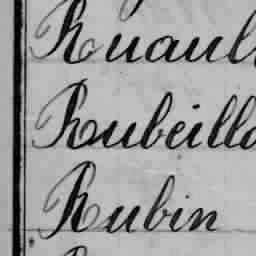 Ruaul
Rubeill
Rubin